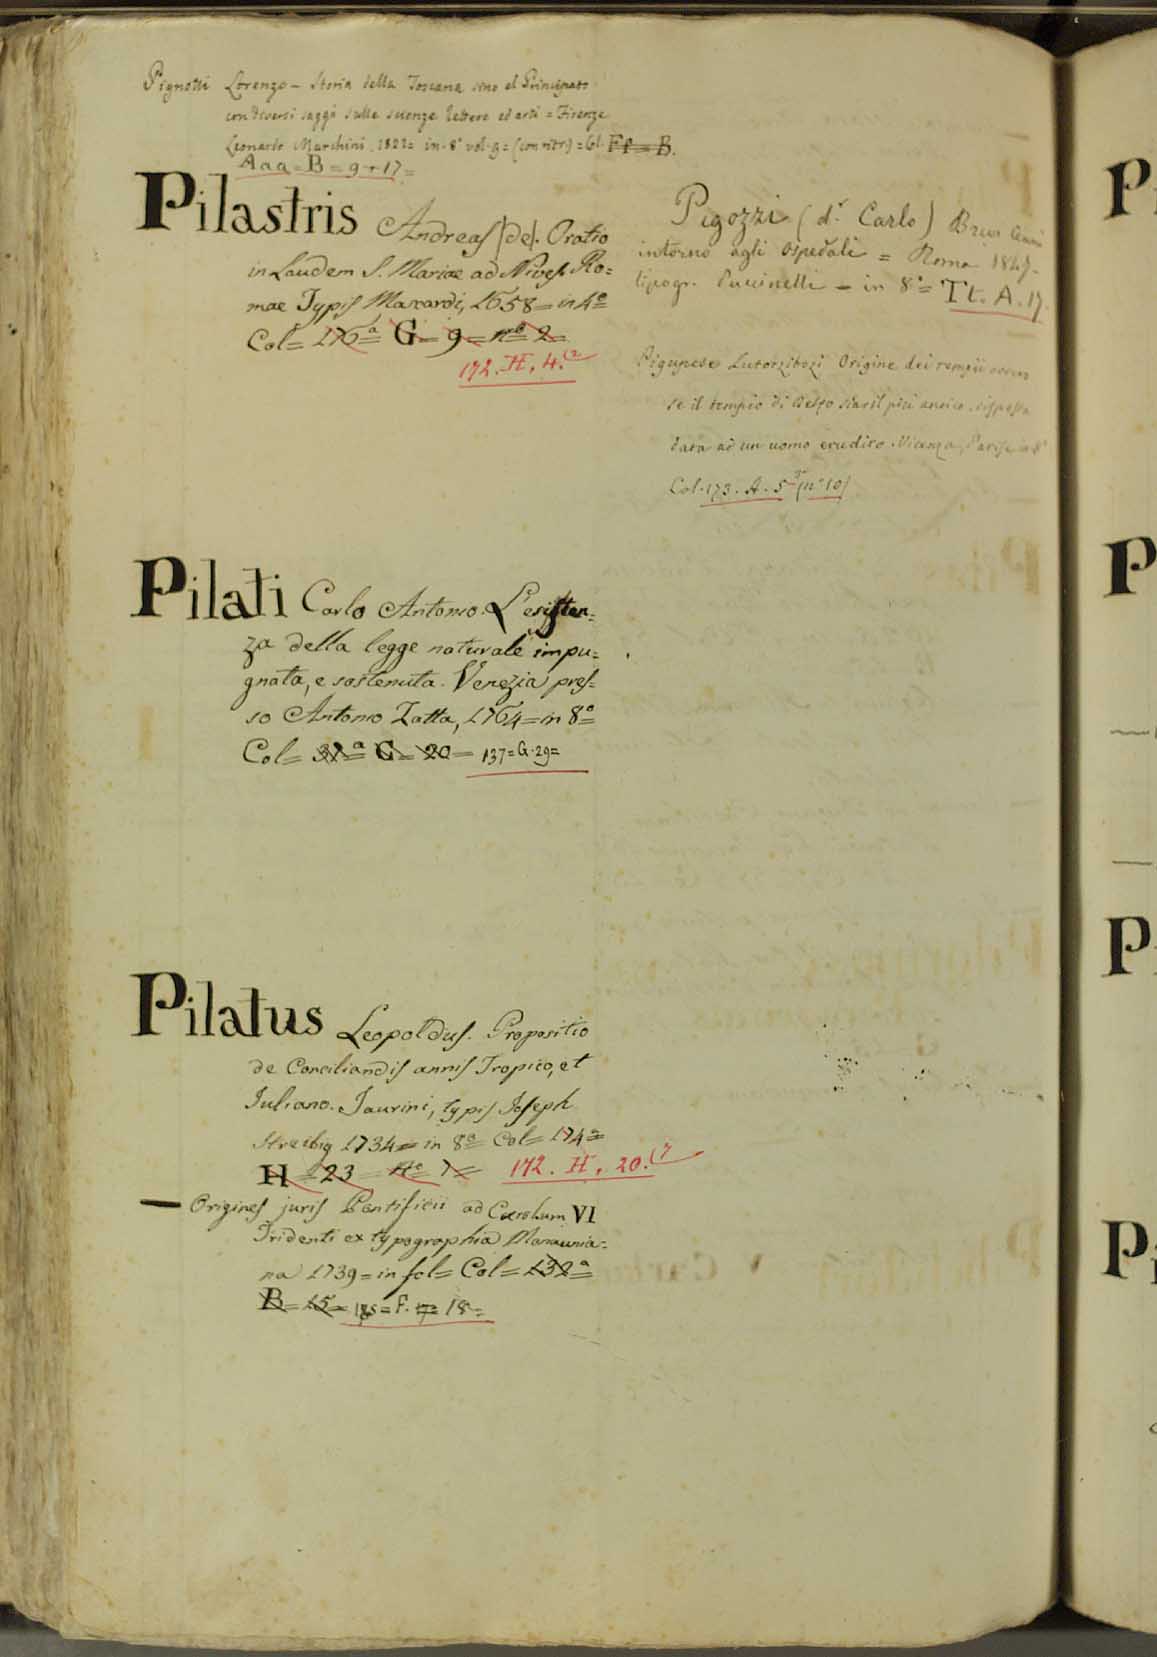 Pignotti Lorenzo – Storia della Toscana sino al Principato
con diversi saggi sulle scienze lettere ed arti = Firenze
Leonardo Marchini. 1822 = in-8° vol. 9 = (con ritr) = Col. Ff = B.
Aaa = B = 9 + 17 =
Pilastris Andreas (de). Oratio
in Laudem S. Mariae ad Nives. Ro=
mae Typis Mascardi, 1658 = in 4°
Col = 176a G = 9 = n° 2 =
172. H. 4. (2
Pilati Carlo Antonio. L'esisten=
za della legge naturale impu=
gnata, e sostenuta. Venezia pres=
so Antonio Zatta, 1764 = in 8°
Col = 32a C = 20 = 137 = G. 29 =
Pilatus Leopoldus. Propositio
de Conciliandis annis Tropico, et
Iuliano. Jaurini, typis Joseph
Streibig 1734 = in 8° Col = 174a
H = 23 = N° 7 = 172. H. 20. (7
— Origines juris Pontificii ad Carolum VI
Tridenti ex typographia Monaunia=
na 1739 = in fol = Col = 132a
B = 15 = F. 18 =
Pigozzi (dr Carlo) Brevi Cenni
intorno agli Ospedali = Roma 1847 -
tipogr. Puccinelli = in 8° = Tt. A. 17.
Origine dei tempii
se il tempio di Delfo sia il più antico. risposta
data ad un uomo erudito. Vicenza, Parise in 8°
Col. 173. A. 5 (n° 10)